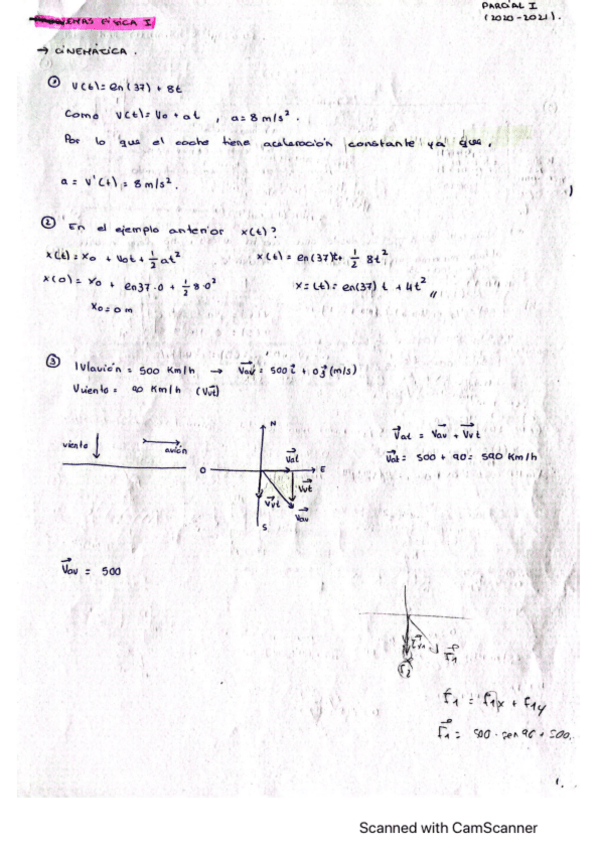 PARCIAL I
(2020-2021).
PROBLEMAS FÍSICA I
→ CINEMÁTICA.
① V(t) = en(37) + 8t
Como V(t) = V₀ + at , a = 8 m/s².
Por lo que el coche tiene aceleración constante ya que,
a = V'(t) = 8 m/s².
② En el ejemplo anterior x(t)?
x(t) = x₀ + V₀t + 1/2 at²
x(t) = en(37)t + 1/2 8t²
x(0) = x₀ + en37·0 + 1/2 8·0²
x = (t) = en(37) t + 4t²
x₀ = 0 m
③ |V|avión = 500 Km/h → Vav = 500i + 0j (m/s)
Vviento = 90 Km/h (Vvt)
viento
avión
N
O
E
S
Vat
Vvt
Vvt
Vav
Vat = Vav + Vvt
Vat = 500 + 90 = 590 Km/h
Vav = 500
F₁
F₂
f₁ = f₁x + f₁y
F₁ = 500 · sen 90 + 500.
1.
Scanned with CamScanner